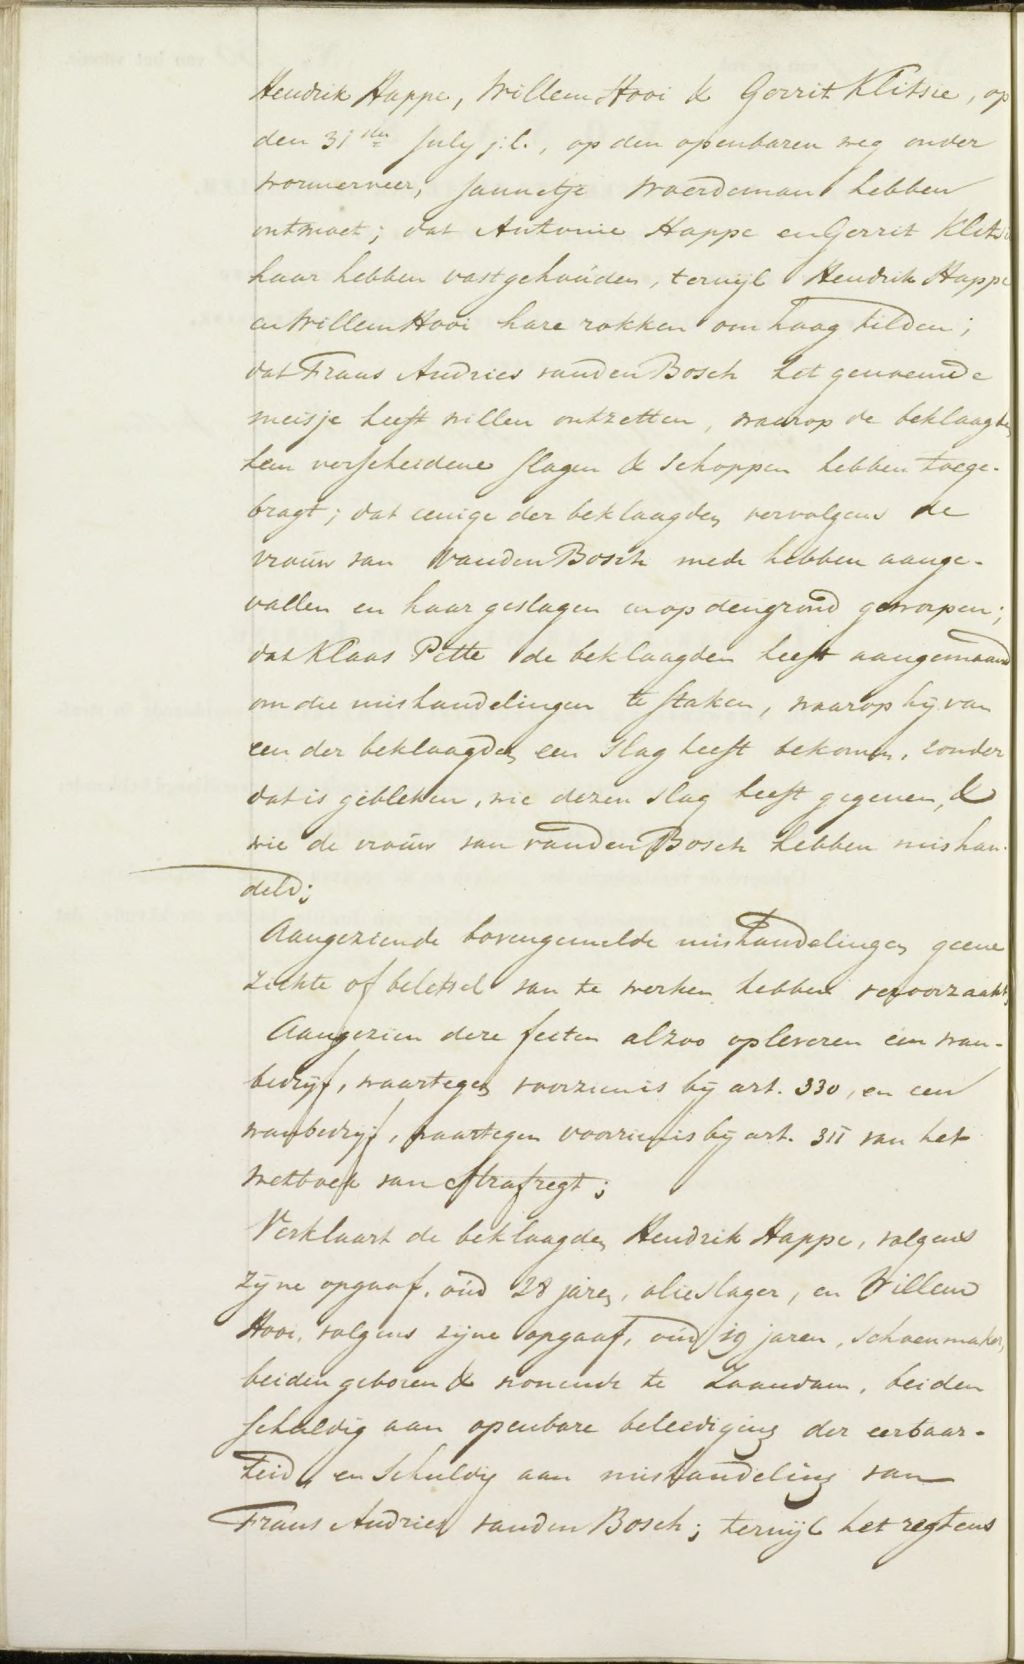 Hendrik Happe, Willem Hooi & Gerrit Klitsie, op
den 31sten July j:l., op den openbaren weg onder
Wormerveer, Jannetje Woerdeman hebben
ontmoet; dat Antonie Happe en Gerrit Klitsie
haar hebben vastgehouden, terwijl Hendrik Happe
en Willem Hooi hare rokken omhoog tilden;
dat Frans Andries van den Bosch het genoemde
meisje heeft willen ontzetten, waarop de beklaagden
hem verscheidene slagen & schoppen hebben toege-
bragt; dat eenige der beklaagden vervolgens de
vrouw van van den Bosch mede hebben aange-
vallen en haar geslagen en op den grond geworpen;
dat Klaas Pette de beklaagden heeft aangemaand
om die mishandelingen te staken, waarop hij van
een der beklaagden een slag heeft bekomen, zonder
dat is gebleken, wie dezen slag heeft gegeven, &
wie de vrouw van van den Bosch hebben mishan-
deld;
Aangezien de bovengemelde mishandelingen geene
ziekte of beletsel van te werken hebben veroorzaakt;
Aangezien deze feiten alzoo opleveren een wan-
bedrijf, waartegen voorzien is bij art. 330, en een
wanbedrijf, waartegen voorzien is bij art. 311 van het
Wetboek van Strafregt;
Verklaart de beklaagden Hendrik Happe, volgens
zijne opgaaf, oud 28 jaren, olieslager, en Willem
Hooi, volgens zijne opgaaf, oud 19 jaren, schoenmaker,
beiden geboren & wonende te Zaandam, beiden
schuldig aan openbare beleediging der eerbaar-
heid, en schuldig aan mishandeling van
Frans Andries van den Bosch; terwijl het regtens